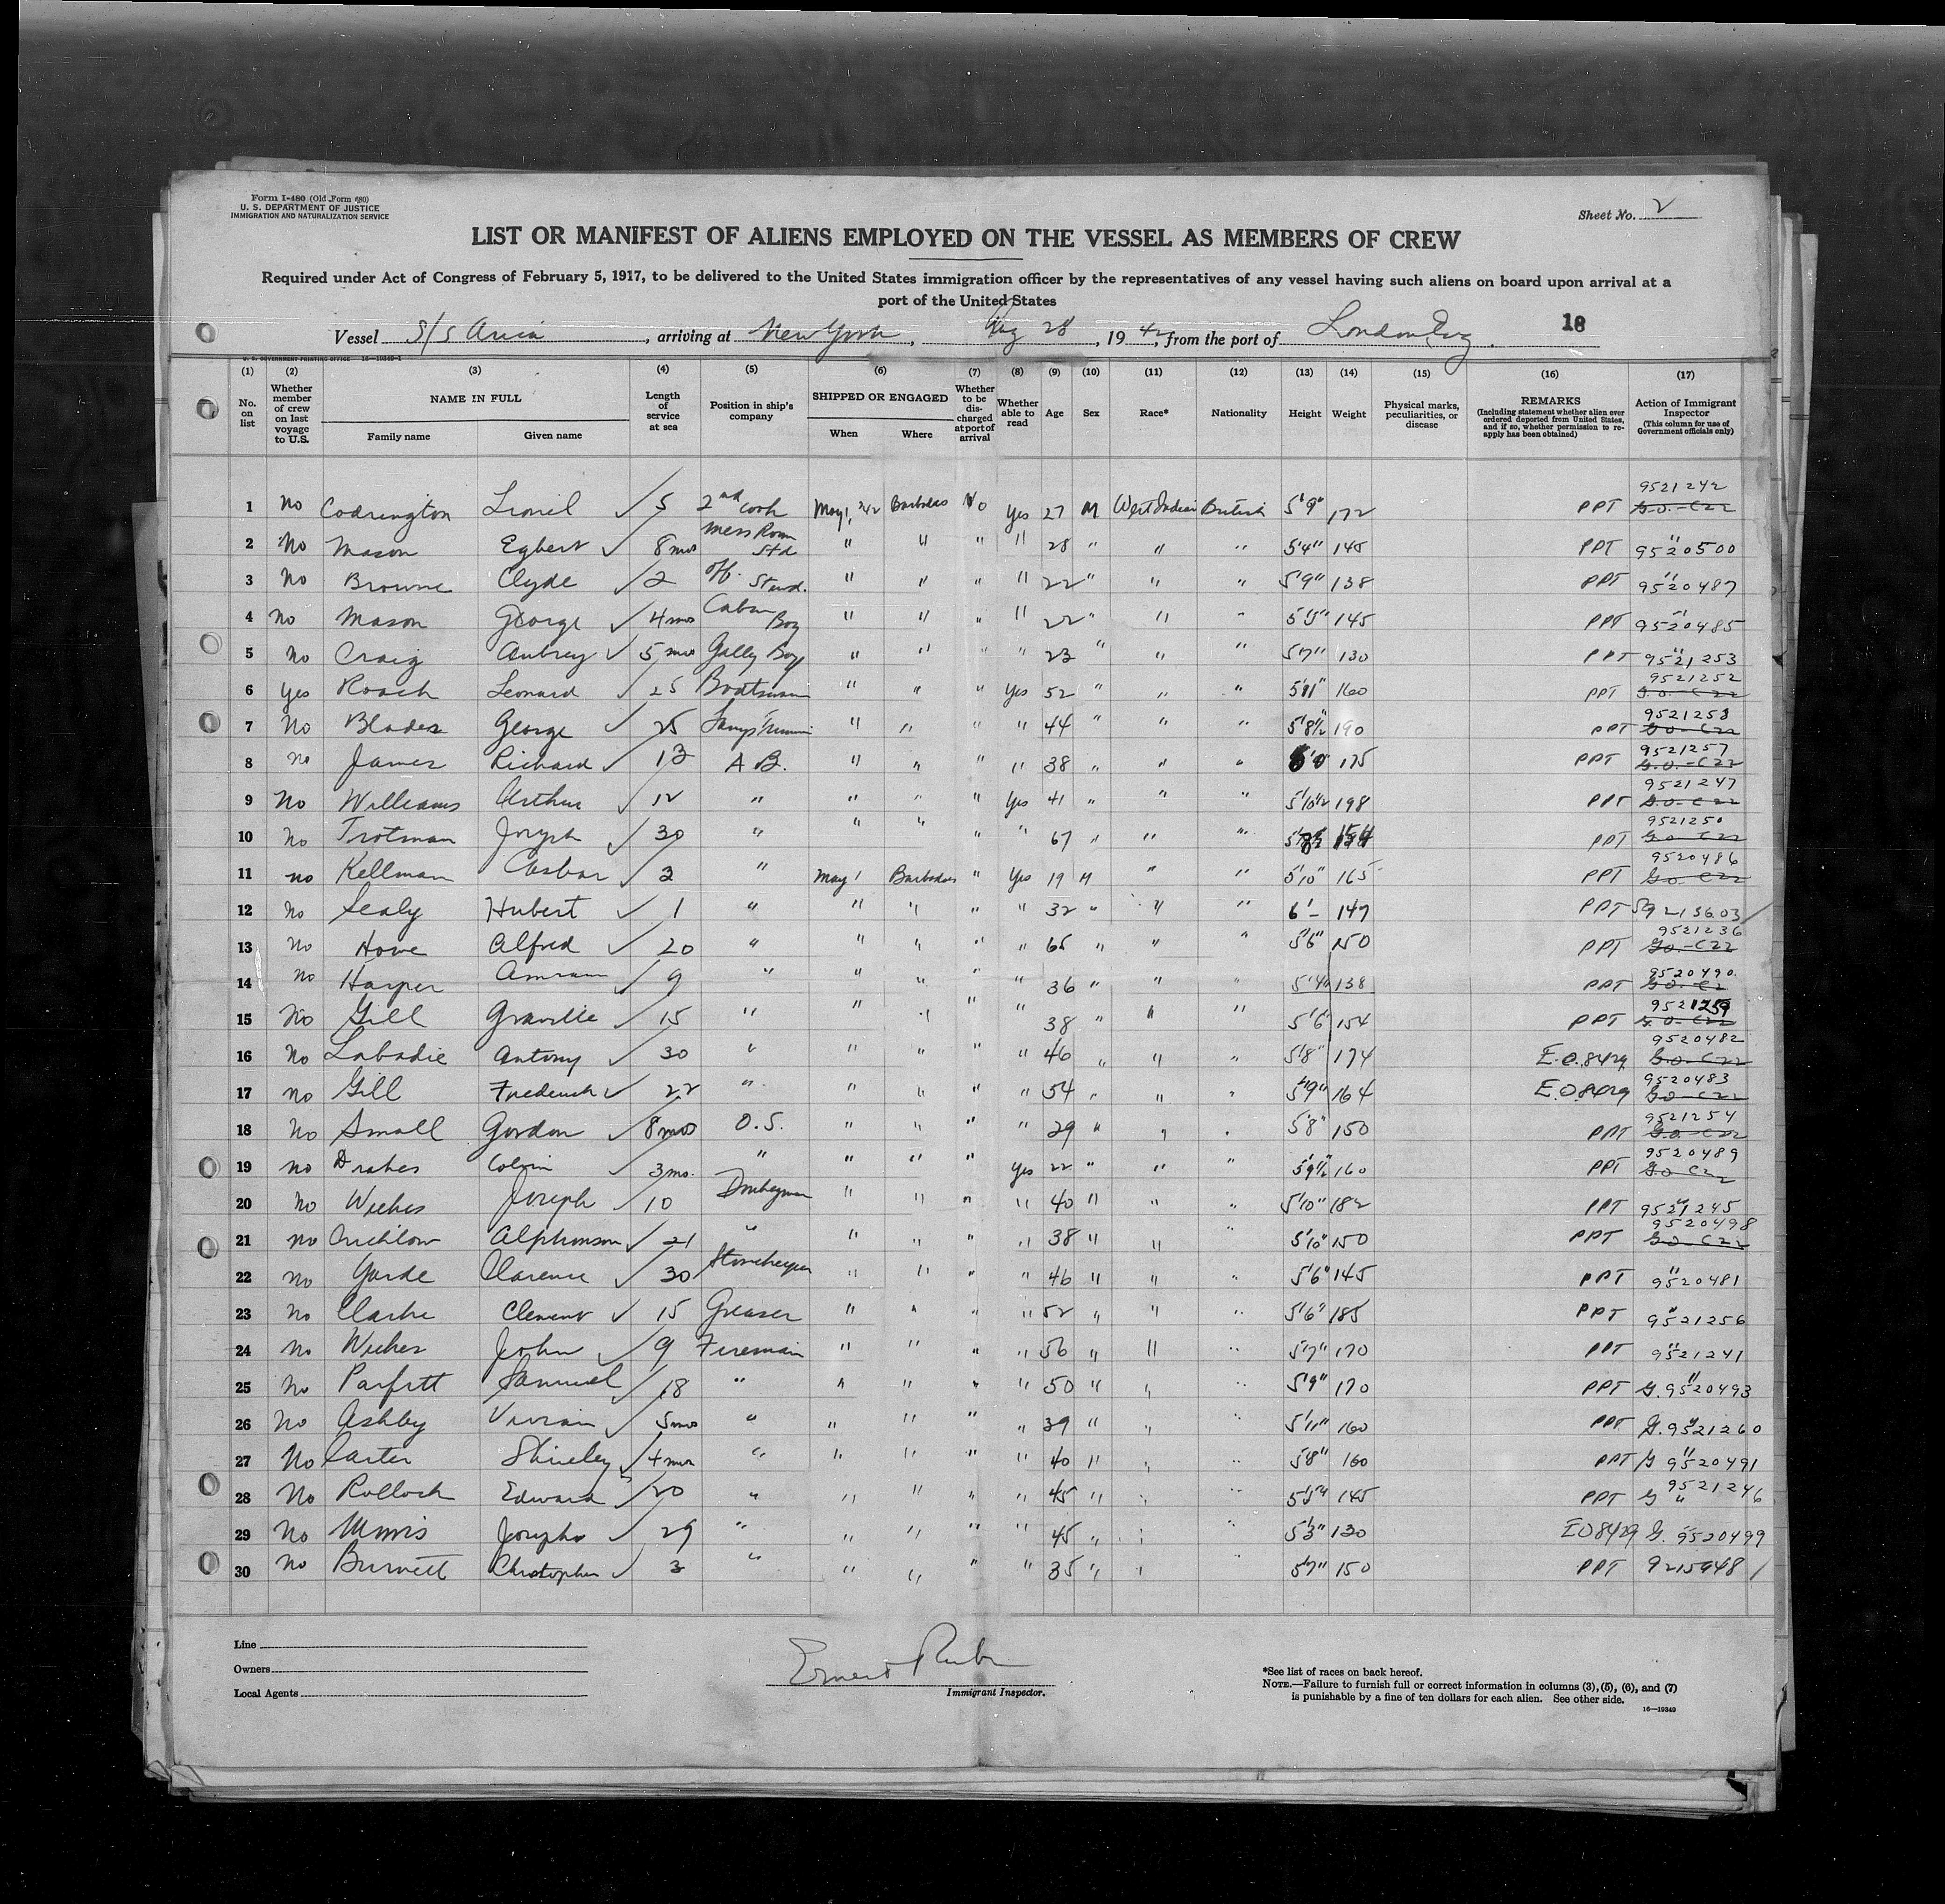 Form I-480 (Old Form 680)
U. S. DEPARTMENT OF JUSTICE
IMMIGRATION AND NATURALIZATION SERVICE
Sheet No. 2
LIST OR MANIFEST OF ALIENS EMPLOYED ON THE VESSEL AS MEMBERS OF CREW
Required under Act of Congress of February 5, 1917, to be delivered to the United States immigration officer by the representatives of any vessel having such aliens on board upon arrival at a
port of the United States
Vessel S/S , arriving at New York, Aug 28, 1942, from the port of London, Eng. 18
U. S. GOVERNMENT PRINTING OFFICE 16—19349-1
(1) (2) (3) (4) (5) (6) (7) (8) (9) (10) (11) (12) (13) (14) (15) (16) (17)
No. on list
Whether member of crew on last voyage to U.S.
NAME IN FULL
Family name Given name
Length of service at sea
Position in ship's company
SHIPPED OR ENGAGED
When Where
Whether to be discharged at port of arrival
Whether able to read
Age Sex Race* Nationality Height Weight
Physical marks, peculiarities, or disease
REMARKS
(Including statement whether alien ever ordered deported from United States, and if so, whether permission to reapply has been obtained)
Action of Immigrant Inspector
(This column for use of Government officials only)
1 No Codrington Lionel ✓ 5 2nd Cook May 1, 42 Barbados No Yes 27 M West Indian British 5'9" 172 PPT 9521242 G.O.-C22
2 No Mason Egbert ✓ 8 mos Mess Room Std " " " " 28 " " " 5'4" 145 PPT " 9520500
3 No Browne Clyde ✓ 2 Off. Stwd. " " " " 22 " " " 5'9" 138 PPT " 9520487
4 No Mason George ✓ 4 mos Cabin Boy " " " " 22 " " " 5'5" 145 PPT " 9520485
5 No Craig Aubrey ✓ 5 mos Gally Boy " " " " 23 " " " 5'7" 130 PPT " 9521253
6 Yes Roach Leonard ✓ 25 Boatswain " " " Yes 52 " " " 5'11" 160 PPT 9521252 G.O.-C22
7 No Blades George ✓ 25 Lamp Trimmer " " " " 44 " " " 5'8½ 190 PPT 9521258 G.O.-C22
8 No James Richard ✓ 13 A B. " " " " 38 " " " 6'0" 175 PPT 9521257 G.O.-C22
9 No Williams Arthur ✓ 12 " " " " Yes 41 " " " 5'10½ 198 PPT 9521247 G.O.-C22
10 No Trotman Joseph ✓ 30 " " " " " 67 " " " PPT 9521250 G.O. C22
11 no Kellman ✓ 3 " May 1 Barbados " Yes 19 M " " 5'10" 165 PPT 9520486 G.O. C22
12 No Sealy Hubert ✓ 1 " " " " " 32 " " " 6'- 147 PPT
13 No Howe Alfred ✓ 20 " " " " " 65 " " " 5'6" 150 PPT 9521236 G.O.-C22
14 No Harper Amram 9 " " " " 36 " " " 138 PPT 9520490 G.O.-C2
15 No Gill Granville ✓ 15 " " " " " 38 " " " 5'6" 154 PPT 9521259 G.O. C22
16 No Labadie Antony ✓ 30 " " " " 46 " " " 5'8" 174 E.O. 8429 9520482 G.O.-C22
17 No Gill Frederick ✓ 22 " " " " " 54 " " " 5'9" 164 E.O. 8429 9520483 G.O.-C22
18 No Small Gordon ✓ 8 mos O.S. " " " " 29 " " " 5'8" 150 PPT 9521254 G.O.-C22
19 No Drakes Colvin ✓ 3 mo. " " " " Yes 22 " " " 5'9½ 160 PPT 9520489 G.O C22
20 No Wiches Joseph ✓ 10 Donkeyman " " " " 40 " " " 5'10" 182 PPT " 9521245
21 No Crichlow Alphonson ✓ 21 " " " " 38 " " " 5'10" 150 PPT 9520498 G.O-C22
22 No Garde Clarence ✓ 30 Storekeeper " " " " 46 " " " 5'6" 145 PPT " 9520481
23 No Clarke Clement ✓ 15 Greaser " " " 52 " " " 5'6" 185 PPT " 9521256
24 No Wiches John ✓ 9 Fireman " " " " 56 " " " 5'7" 170 PPT " 9521241
25 No Parfitt Samuel ✓ 18 " " " " " 50 " " " 5'9" 170 PPT G. " 9520493
26 No Ashby Vivian ✓ 5 mos " " " " " 39 " " " 5'11" 160 PPT G. " 9521260
27 No Carter Shirley ✓ 4 mos " " " " " 40 " " " 5'8" 160 PPT G " 9520491
28 No Rollock Edward ✓ 20 " " " " " 45 " " " 5'5" 145 PPT G " 9521246
29 No Joseph ✓ 29 " " " " " 45 " " " 5'3" 130 EO 8429 G. 9520499
30 No Burnett Christopher ✓ 3 " " " " " 35 " " " 5'7" 150 PPT 9215948 /
Line
Owners
Local Agents
Ernest
Immigrant Inspector.
*See list of races on back hereof.
NOTE.—Failure to furnish full or correct information in columns (3), (5), (6), and (7)
is punishable by a fine of ten dollars for each alien. See other side.
16—19349